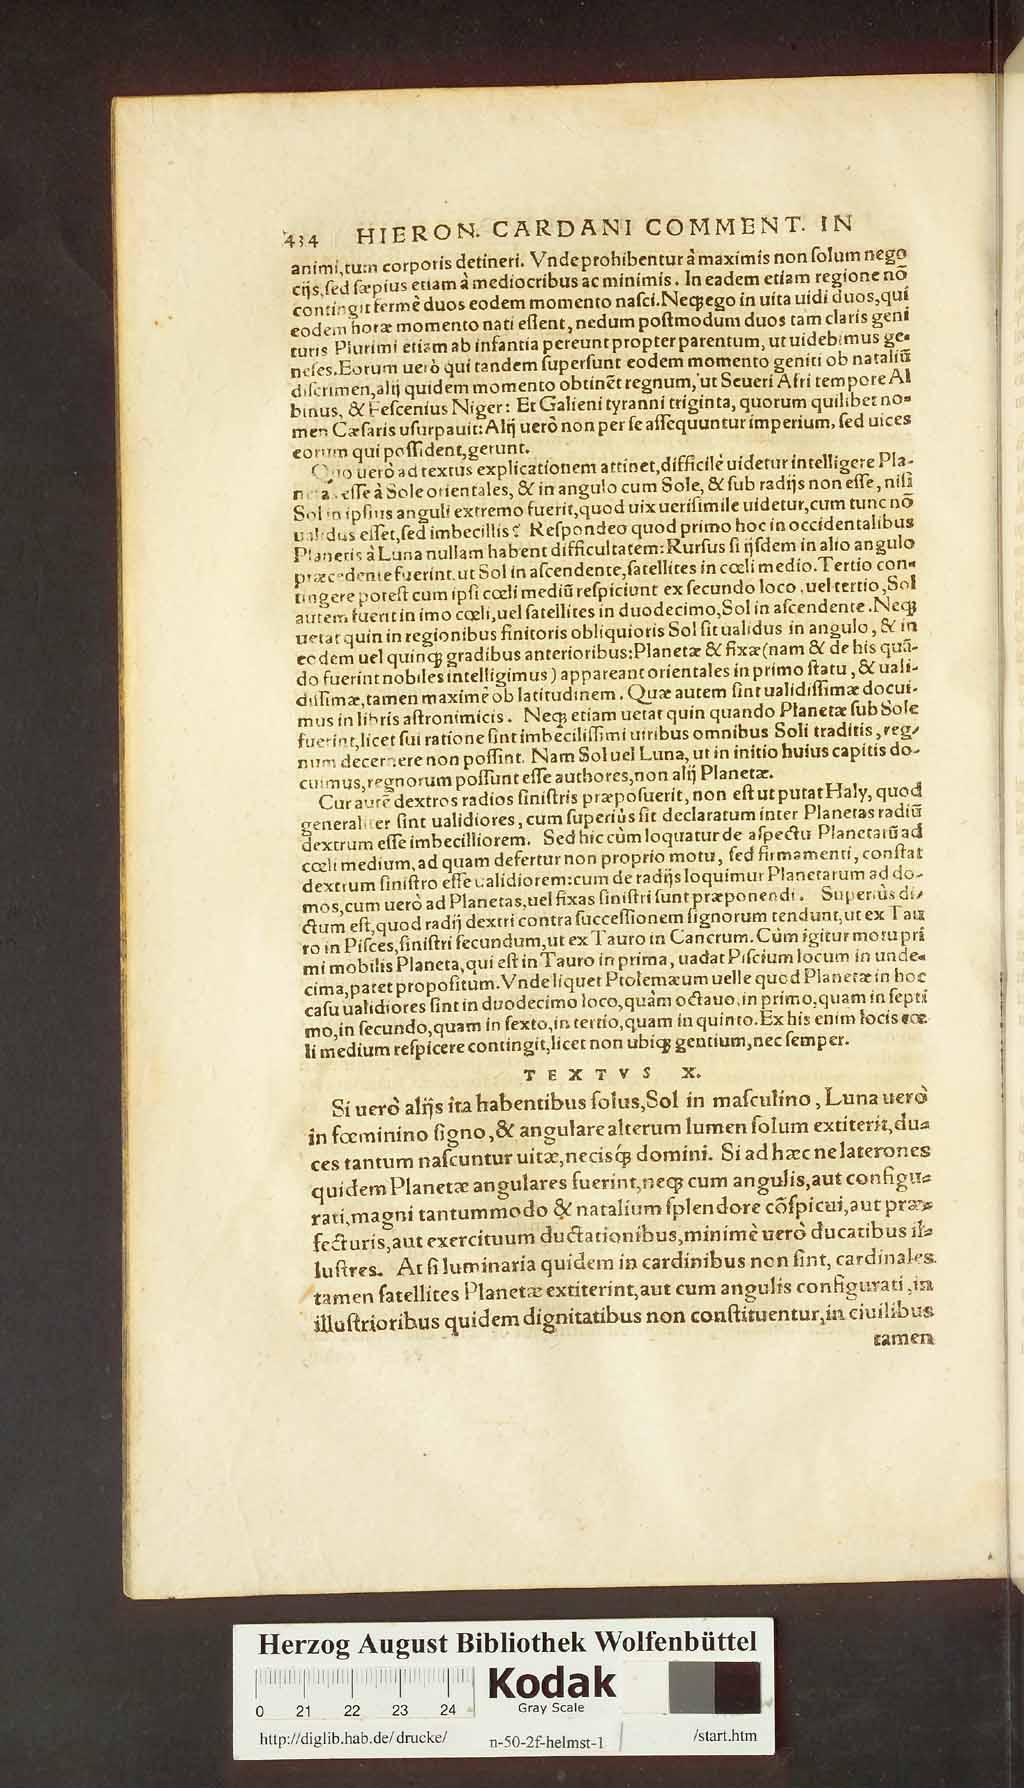 434 HIERON. CARDANI COMMENT. IN
animi, tum corporis detineri. Vnde prohibentur à maximis non ſolum nego
cijs, ſed ſæpius etiam à mediocribus ac minimis. In eadem etiam regione nõ
contingit fermè duos eodem momento naſci. Neq; ego in uita uidi duos, qui
eodem horæ momento nati eſſent, nedum poſtmodum duos tàm claris geni
turis Plurimi etiam ab infantia pereunt propter parentum, ut uidebimus ge=
neſes. Eorum uerò qui tandem ſuperſunt eodem momento geniti ob nataliũ
diſcrimen, alij quidem momento obtinẽt regnum, ut Seueri Afri tempore Al
binus, & Peſcenius Niger: Et Galieni tyranni triginta, quorum quilibet no=
men Cæſaris uſurpauit: Alij uerò non per ſe aſſequuntur imperium, ſed uices
eorum qui poſſident, gerunt.
Quo uerò ad textus explicationem attinet, difficilè uidetur intelligere Pla-
netas eſſe à Sole orientales, & in angulo cum Sole, & ſub radijs non eſſe, niſi
Sol in ipſius anguli extremo fuerit, quod uix ueriſimile uidetur, cum tunc nõ
ualidus eſſet, ſed imbecillis? Reſpondeo quod primo hoc in occidentalibus
Planetis à Luna nullam habent difficultatem: Rurſus ſi ijſdem in alio angulo
præcedente fuerint, ut Sol in aſcendente, ſatellites in cœli medio. Tertio con=
tingere poteſt cum ipſi cœli mediũ reſpiciunt ex ſecundo loco, uel tertio, Sol
autem fuerit in imo cœli, uel ſatellites in duodecimo, Sol in aſcendente. Neq;
uetat quin in regionibus finitoris obliquioris Sol ſit ualidus in angulo, & in
eodem uel quinq; gradibus anterioribus: Planetæ & fixæ (nam & de his quã-
do fuerint nobiles intelligimus) appareant orientales in primo ſtatu, & uali-
diſſimæ, tamen maximè ob latitudinem. Quæ autem ſint ualidiſſimæ docui-
mus in libris aſtronimicis. Neq; etiam uetat quin quando Planetæ ſub Sole
fuerint, licet ſui ratione ſint imbecilliſſimi uiribus omnibus Soli traditis, reg-
num decernere non poſſint. Nam Sol uel Luna, ut in initio huius capitis do-
cuimus, regnorum poſſunt eſſe authores, non alij Planetæ.
Cur autẽ dextros radios ſiniſtris præpoſuerit, non eſt ut putat Haly, quod
generaliter ſint ualidiores, cum ſuperiùs ſit declaratum inter Planetas radiũ
dextrum eſſe imbecilliorem. Sed hic cùm loquatur de aſpectu Planetarũ ad
cœli medium, ad quam defertur non proprio motu, ſed firmamenti, conſtat
dextrum ſiniſtro eſſe ualidiorem: cum de radijs loquimur Planetarum ad do-
mos, cum uerò ad Planetas, uel fixas ſiniſtri ſunt præponendi. Superiùs di-
ctum eſt, quod radij dextri contra ſucceſſionem ſignorum tendunt, ut ex Tau
ro in Piſces, ſiniſtri ſecundum, ut ex Tauro in Cancrum. Cùm igitur motu pri
mi mobilis Planeta, qui eſt in Tauro in prima, uadat Piſcium locum in unde=
cima, patet propoſitum. Vnde liquet Ptolemæum uelle quod Planetæ in hoc
caſu ualidiores ſint in duodecimo loco, quàm octauo, in primo, quam in ſepti
mo, in ſecundo, quam in ſexto, in tertio, quam in quinto. Ex his enim locis cœ
li medium reſpicere contingit, licet non ubiq; gentium, nec ſemper.
TEXTVS X.
Si uerò alijs ita habentibus ſolus, Sol in maſculino, Luna uerò
in fœminino ſigno, & angulare alterum lumen ſolum extiterit, du=
ces tantum naſcuntur uitæ, necisq́; domini. Si ad hæc ne laterones
quidem Planetæ angulares fuerint, neq; cum angulis, aut configu=
rati, magni tantummodo & natalium ſplendore cõſpicui, aut præ=
fecturis, aut exercituum ductationibus, minimè uerò ducatibus il=
luſtres. At ſi luminaria quidem in cardinibus non ſint, cardinales
tamen ſatellites Planetæ extiterint, aut cum angulis configurati, in
illuſtrioribus quidem dignitatibus non conſtituentur, in ciuilibus
tamen
Herzog August Bibliothek Wolfenbüttel
Kodak
Gray Scale
0 21 22 23 24
http://diglib.hab.de/drucke/ n-50-2f-helmst-1 /start.htm